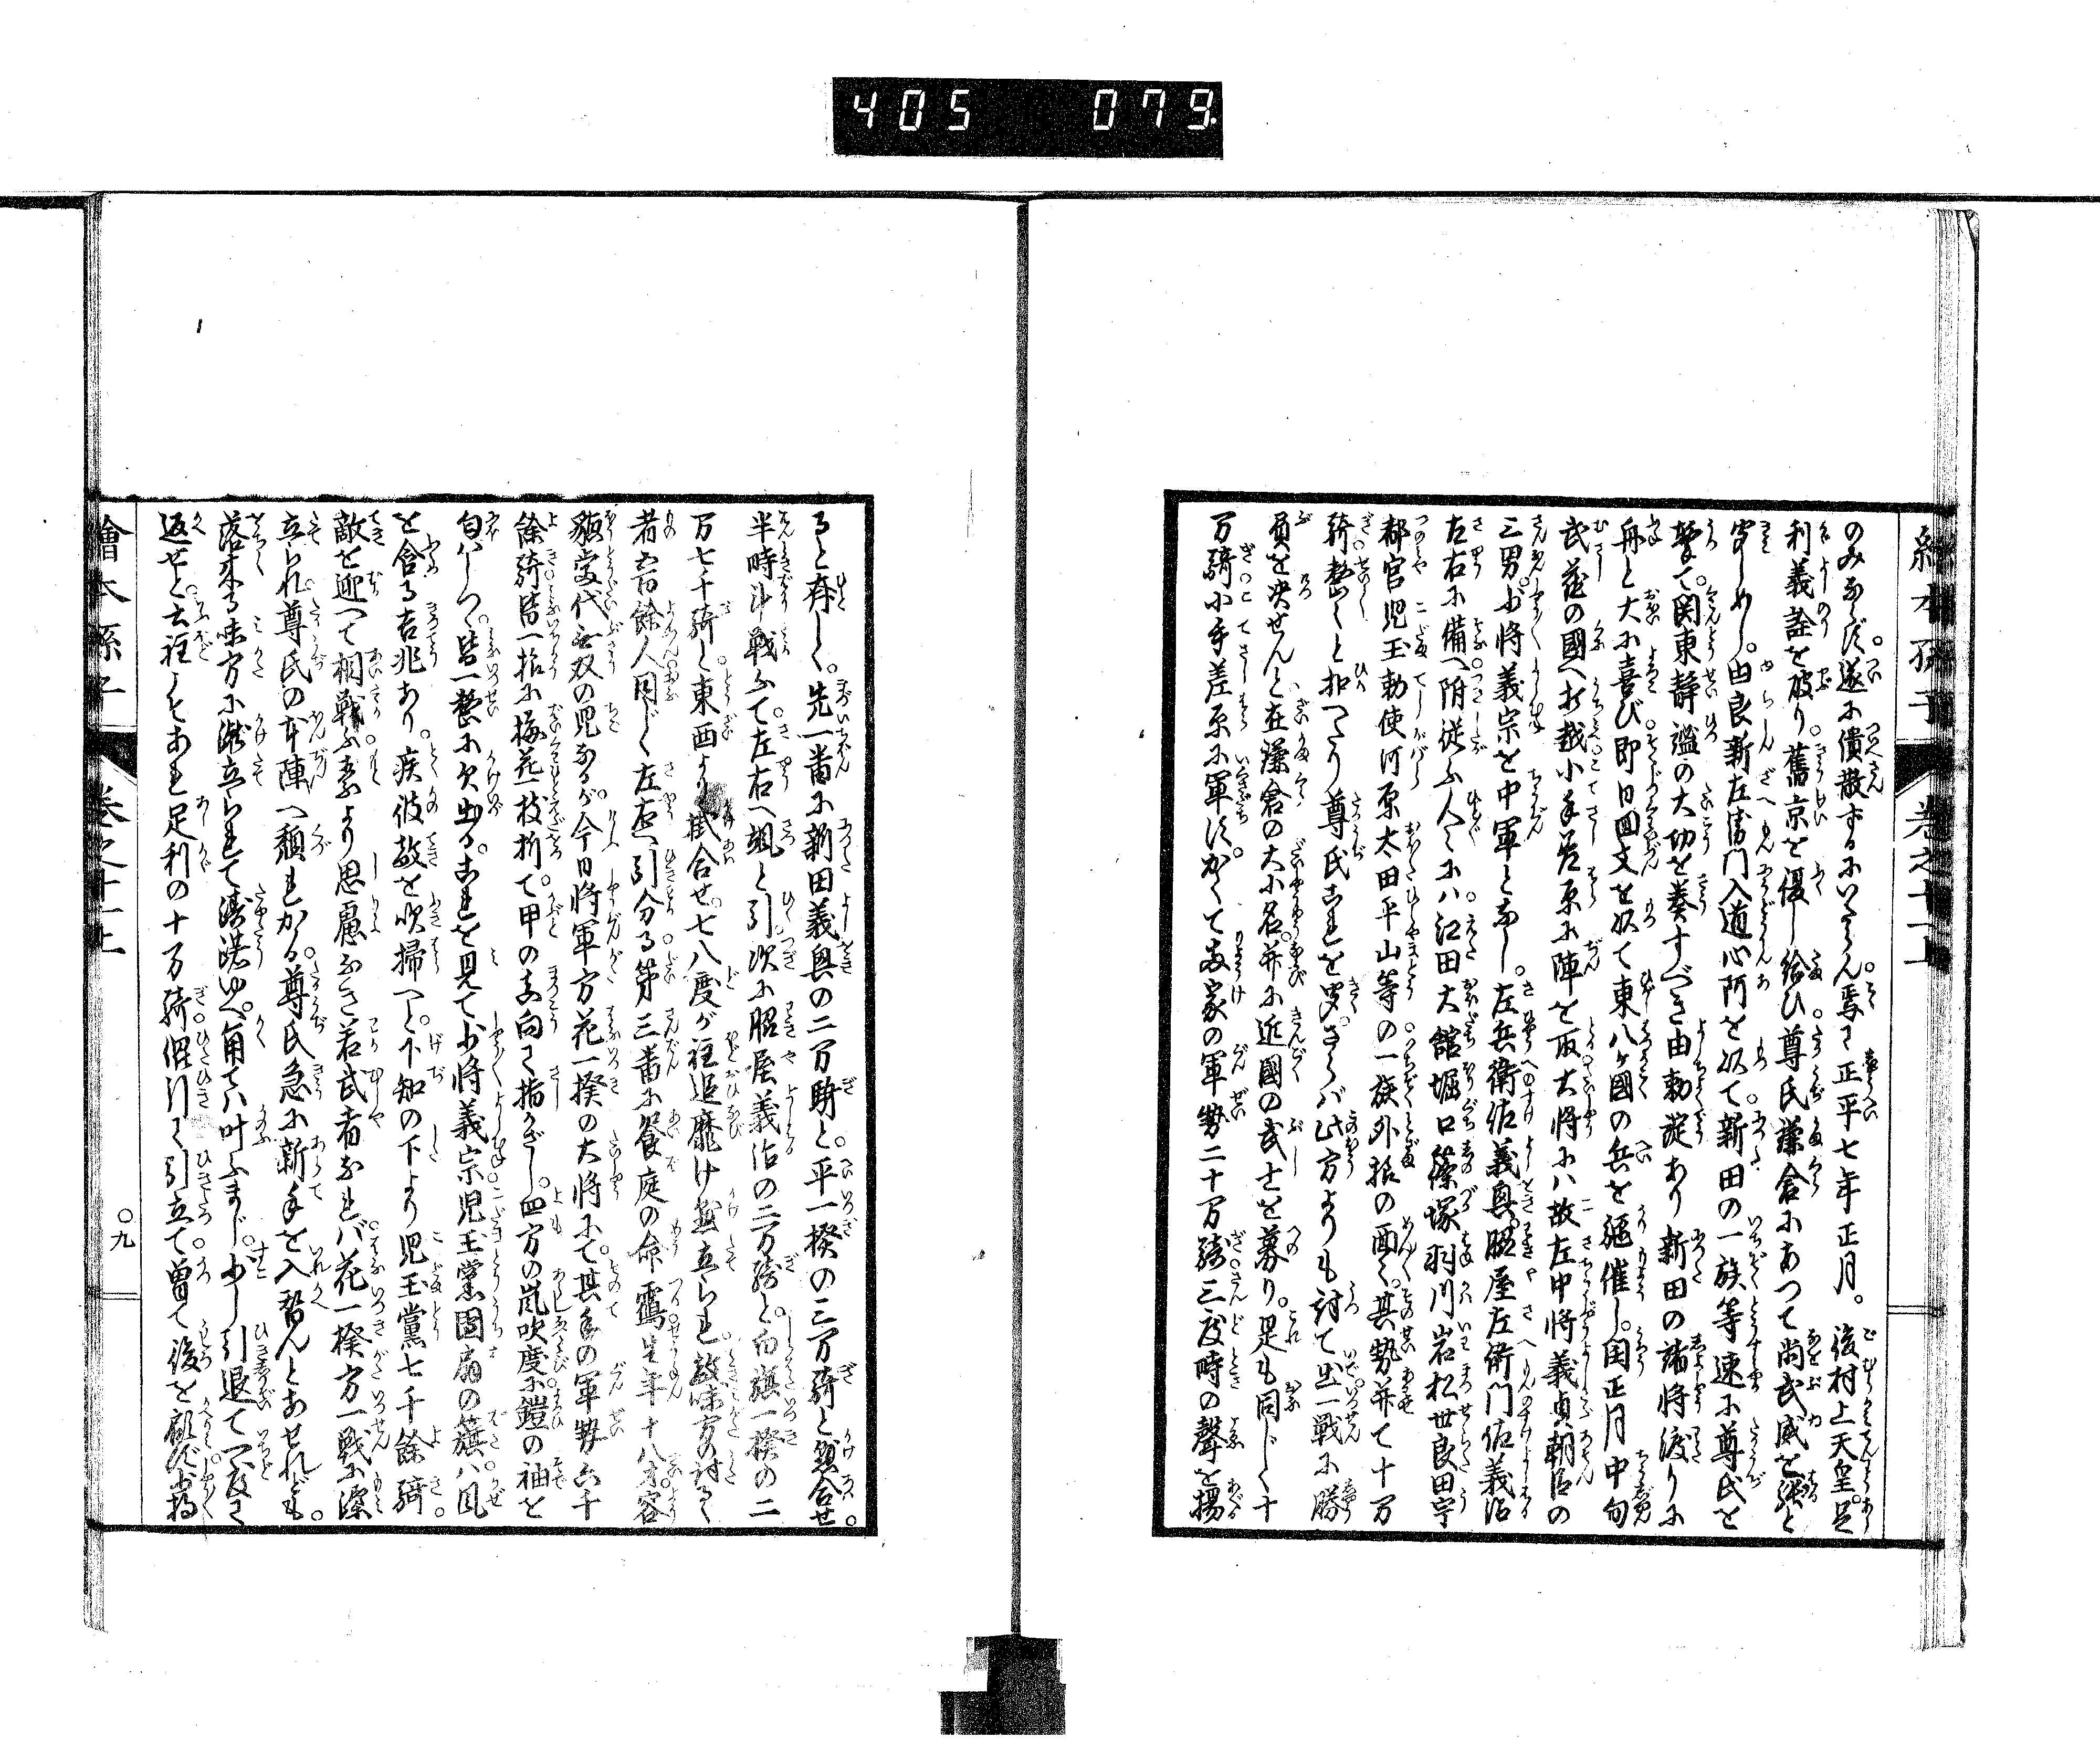 405 079
繪本孫子 巻之十一上
のみならず。遂に潰散するにいたらん。焉に正平七年正月。後村上天皇。足
利義詮を破り。舊京を復し給ひ。尊氏鎌倉にあつて尚武威を張と
聞しめし。由良新左衛門入道心阿を以て。新田の一族等速に尊氏を
撃て。関東静謐の大功を奏すべき由勅諚あり新田の諸将渡りに
舟と大に喜び即日回文を以て東八ヶ國の兵を駈催し。閏正月中旬
武蔵の國へ打越小手差原に陣を取大将にハ故左中将義貞朝臣の
三男。少将義宗を中軍となし。左兵衛佐義興。脇屋左衛門佐義治
左右に備へ附従ふ人々にハ。江田大舘堀口篠塚羽川岩松世良田宇
都宮児玉勅使河原太田平山等の一族外招の面々。其勢并て十万
騎。整々と扣へたり尊氏これを聞。さらバ此方よりも討て出一戦に勝
負を决せんと在鎌倉の大小名。并に近國の武士を募り。是も同じく十
万騎小手差原に軍す。かくて両家の軍勢二十万騎三度時の聲を揚
ると斉しく。先一番に新田義興の二万騎と。平一揆の三万騎と懸合せ。
半時斗戦ふて。左右へ颯と引次に脇屋義治の二万騎と。白旗一揆の二
万七千騎と東西より掛合せ。七八度が程追靡け懸立られ敵味方の討るゝ
者五百餘人同じく左右へ引分る第三番に饗庭の命鶴生年十八才容
貌當代無双の児なるが。今日将軍方花一揆の大将にて。其手の軍勢六千
餘騎皆一招に梅花一枝折て。甲の真向に指かざし。四方の嵐吹度に鎧の袖を
匂ハしつゝ。皆一整に欠出る。これを見て少将義宗児玉黨團扇の旗ハ風
を含る吉兆あり。疾彼敵を吹掃へと。下知の下より児玉黨七千餘騎。
敵を迎へて相戦ふ素より思慮なき若武者なれバ花一揆方一戦に揉
立られ。尊氏の本陣へ頽れかゝる。尊氏急に新手を入替んとあせれども。
落来る味方に蹴立られて漂ゆへ角てハ叶ふまじ。少し引退て一度に
返せと。云程こそあれ足利の十万騎。混引に引立て。曽て後を顧ず。少将
繪本孫子 巻之十一上 〇九